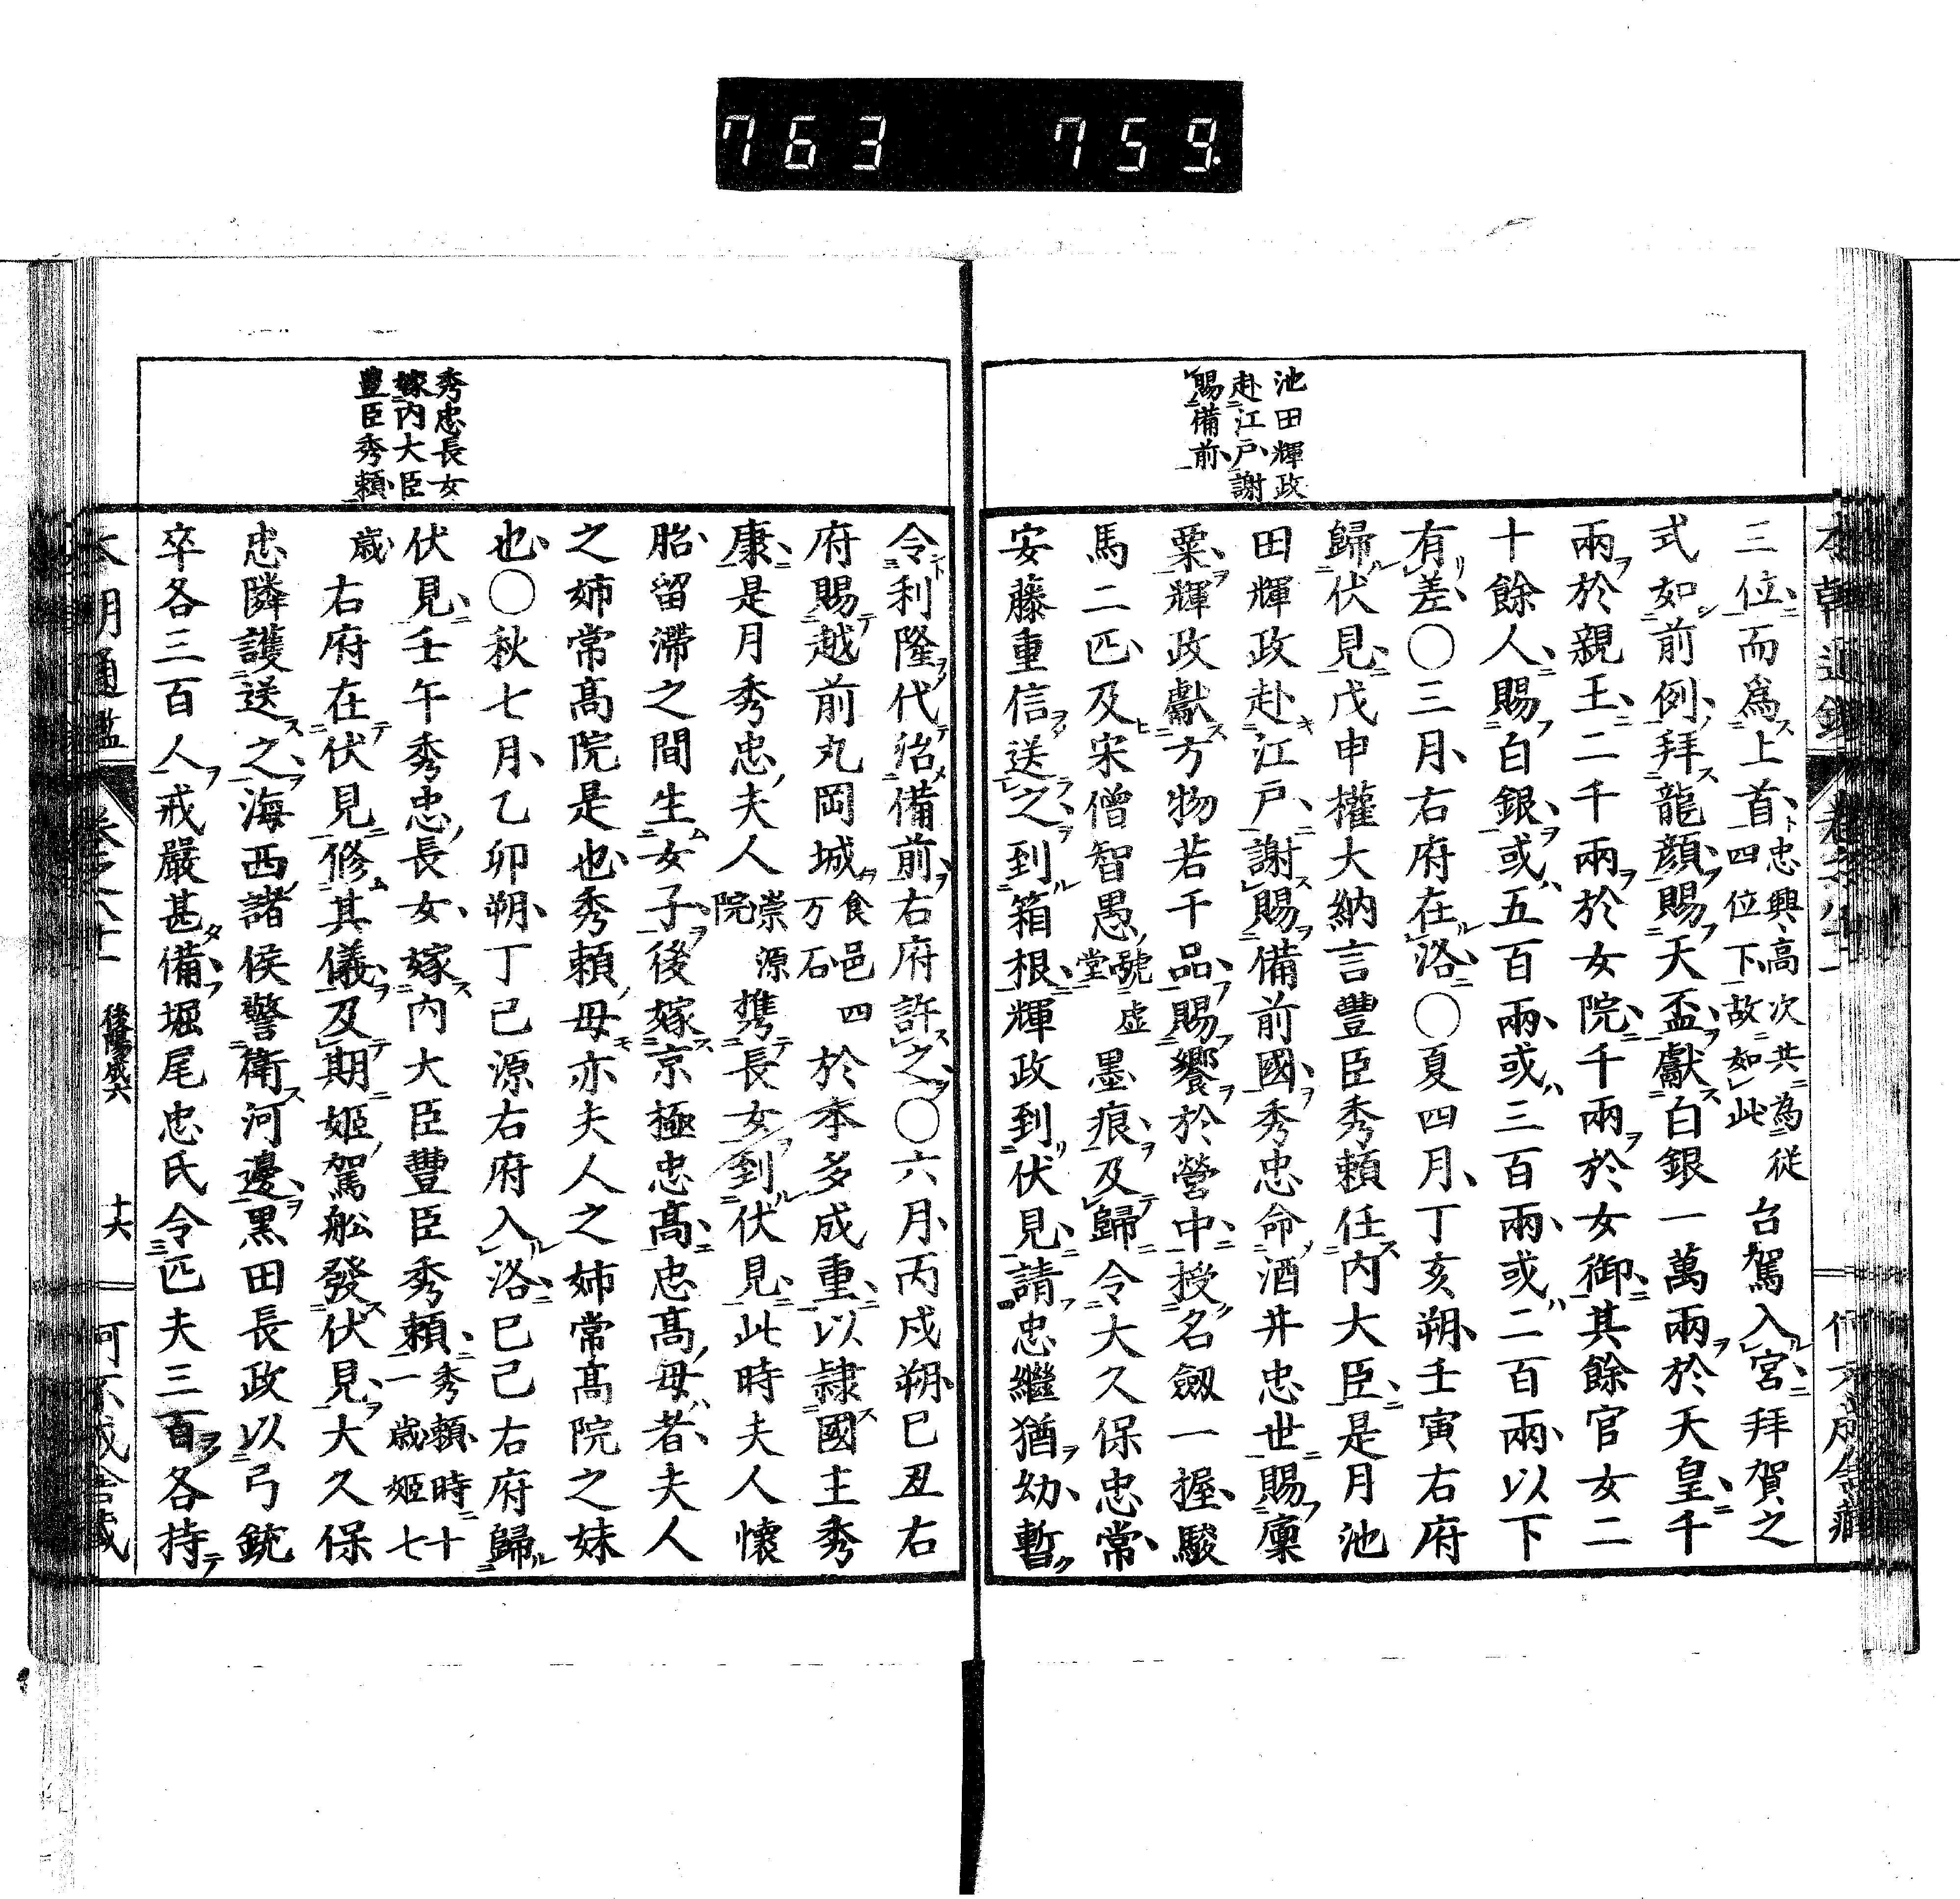 763 759
池田輝政
赴江戸謝
賜備前
三位而爲上首忠興高次共為從四位下故如此台駕入宮拜賀之
式如前例拜龍顔賜天盃獻白銀一萬兩於天皇千
兩於親王二千兩於女院千兩於女御其餘官女二
十餘人賜白銀或五百兩或三百兩或二百兩以下
有差〇三月右府在洛〇夏四月丁亥朔壬寅右府
歸伏見戊申權大納言豐臣秀頼任内大臣是月池
田輝政赴江戸謝賜備前國秀忠命酒井忠世賜廩
粟輝政獻方物若干品賜饗於營中授名劔一握駿
馬二匹及宋僧智愚號虚堂墨痕及歸令大久保忠常
安藤重信送之到箱根輝政到伏見請忠繼猶幼暫
秀忠長女
嫁内大臣
豊臣秀頼
令利隆代治備前右府許之〇六月丙戌朔己丑右
府賜越前丸岡城食邑四万石於本多成重以隷國主秀
康是月秀忠夫人崇源院携長女到伏見此時夫人懷
胎留滯之間生女子後嫁京極忠高忠高母者夫人
之姉常高院是也秀頼母亦夫人之姉常高院之妹
也〇秋七月乙卯朔丁巳源右府入洛己巳右府歸
伏見壬午秀忠長女嫁内大臣豐臣秀頼秀頼時十一歳姬七
歳右府在伏見修其儀及期姬駕舩發伏見大久保
忠隣護送之海西諸侯警衛河邊黒田長政以弓銃
卒各三百人戒嚴甚備堀尾忠氏令匹夫三百各持
後陽成六
十六